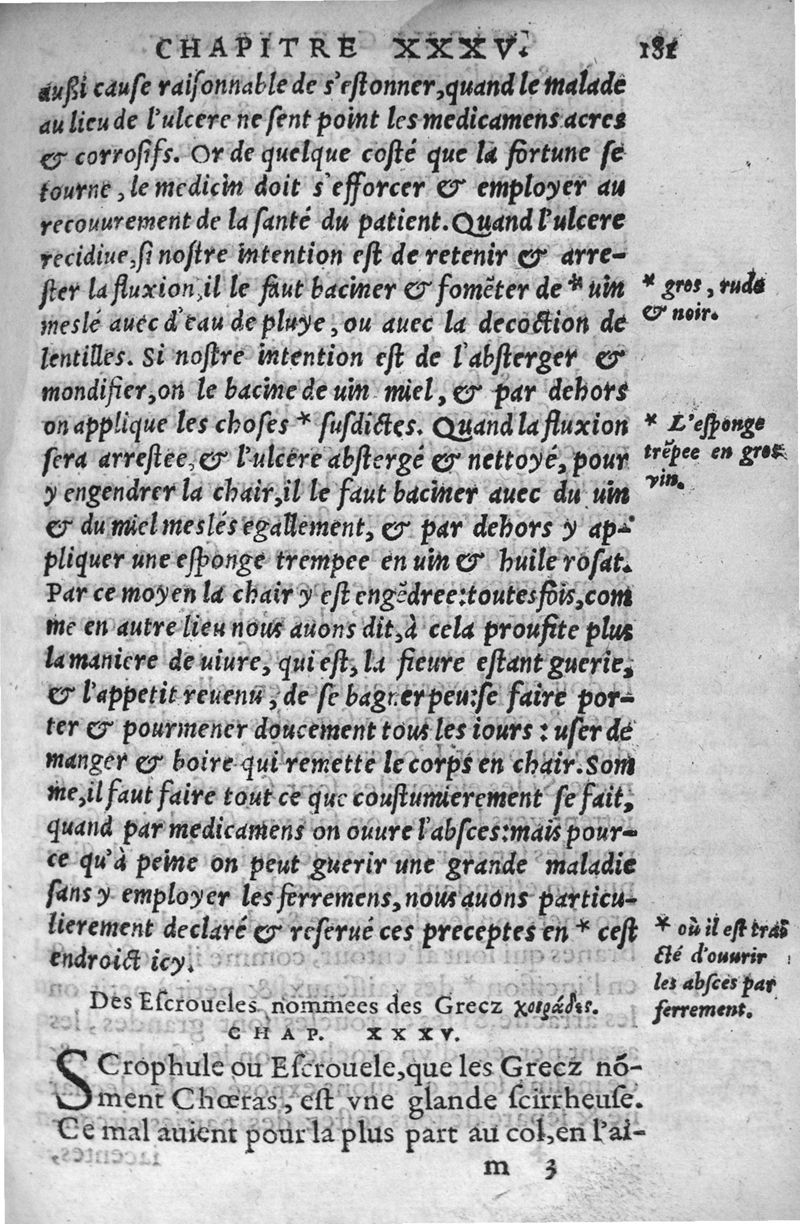 CHAPITRE XXXV. 181
außi cause raiſonnable de s'eſtonner, quand le malade
au lieu de l'ulcere ne ſent point les medicamens acres
& corroſifs. Or de quelque coſté que la fortune ſe
tourne, le medicin doit s'efforcer & employer au
recouurement de la ſanté du patient. Quand l'ulcere
recidiue, ſi noſtre intention eſt de retenir & arre-
ſter la fluxion, il le faut baciner & fomẽter de * uin
meslé auec d'eau de pluye, ou auec la decoction de
lentilles. Si noſtre intention eſt de l'abſterger &
mondifier, on le bacine de uin miel, & par dehors
on applique les choſes * ſuſdictes. Quand la fluxion
ſera arreſtée, & l'ulcere abſtergé & nettoyé, pour
y engendrer la chair, il le faut baciner auec du uin
& du miel meslés egallement, & par dehors y ap-
pliquer une eſponge trempee en uin & huile roſat.
Par ce moyen la chair y eſt engẽdree: toutesfois, com
me en autre lieu nous auons dit, à cela proufite plus
la maniere de uiure, qui eſt, la fieure eſtant guerie,
& l'appetit reuenu, de ſe bagner peu: ſe faire por-
ter & pourmener doucement tous les iours : uſer de
manger & boire qui remette le corps en chair. Som
me, il faut faire tout ce que couſtumierement ſe fait,
quand par medicamens on ouure l'abſces: mais pour-
ce qu'à peine on peut guerir une grande maladie
ſans y employer les ferremens, nous auons particu-
lierement declaré & reſerué ces preceptes en * ceſt
endroict icy.
* gros, rude
& noir.
* L'eſponge
trẽpee en gros
vin.
* où il eſt trai
cté d'ouurir
les abſces par
ferrement.
Des Eſcroueles nommees des Grecz χοιράδες.
CHAP. XXXV.
SCrophule ou Eſcrouele, que les Grecz nõ-
ment Chœras, eſt vne glande ſcirrheuſe.
Ce mal auient pour la plus part au col, en l'ai-
m 3